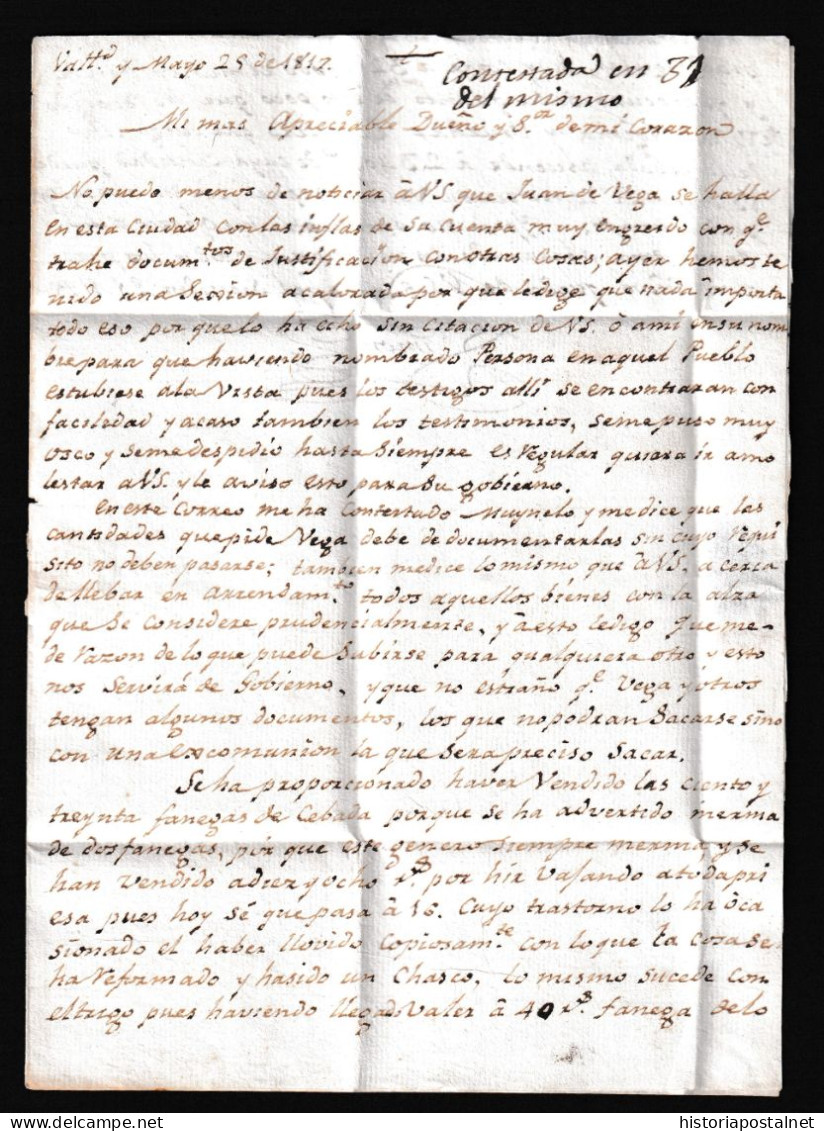 Vall.d y Mayo 28 de 1817.
Contestada en 31
del mismo
Mi mas Apreciable Dueño y S.or de mi Corazon
No puedo menos de noticiar â VS que Juan de Vega se halla
en esta Ciudad con las inflas de sa Cuenta muy engreido con q.e
trahe docum.tos de Justificacion con otras Cosas; ayer hemos te
nido una Session acalorada por que le dige que nada importa
todo eso por que lo ha echo sin Citacion de VS. ò a mi en su nom
bre para que haviendo nombrado Persona en aquel Pueblo
estubiese a la Vista pues los testigos alli se encontraran con
faciledad y acaso tambien los testimonios, se me puso muy
osco y se me despidiò hasta siempre es regular quiera ir a mo
lestar a VS. y le aviso esto para su gobierno.
En este Correo me ha Contestado Muynelo y me dice que las
cantidades que pide Vega debe de documentarlas sin cuyo requi
sito no deben pasarse; tambien me dice lo mismo que â VS. a cerca
de llebar en arrendam.to todos aquellos bienes con la alza
que se considere prudencialmente, y â esto le digo que me
de razon de lo que puede subirse para qualquiera otro y esto
nos servirá de Gobierno, y que no estraño q.e Vega y otros
tengan algunos documentos, los que no podran sacarse sino
con una excomunion la que sera preciso sacar.
Se ha proporcionado haver Vendido las ciento y
treynta fanegas de Cebada porque se ha advertido merma
de dos fanegas, por que este genero siempre merma, y se
han vendido a diez y ocho r.s por hir vajando a toda pri
esa pues hoy sé que pasa â 16. Cuyo trastorno lo ha ôca
sionado el haber llovido Copiosam.te con lo que la cosa se
ha reformado y ha sido un Chasco, lo mismo sucede con
el trigo pues haviendo llegado Valer â 40 r.s fanega de lo
historiapostalnet